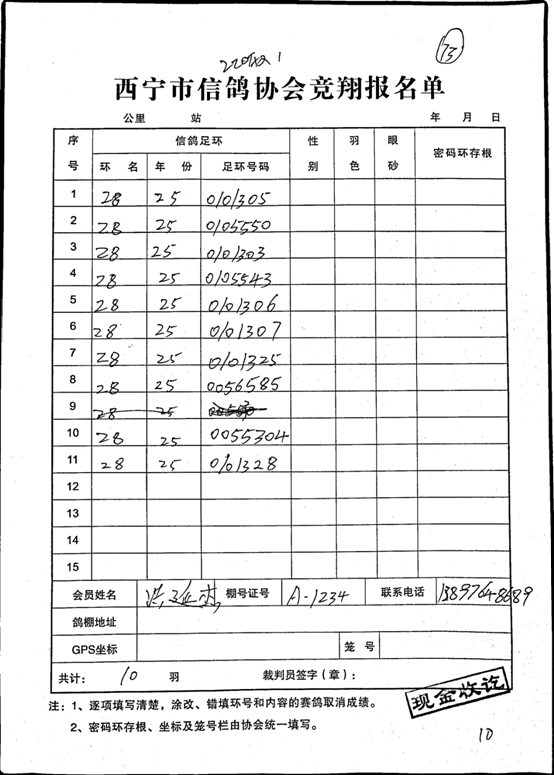 73
西宁市信鸽协会竞翔报名单
公里 站 年 月 日
序号 信鸽足环 性别 羽色 眼砂 密码环存根
环 名 年 份 足环号码
1 28 25 0101305
2 28 25 0105550
3 28 25 0101303
4 28 25 0105543
5 28 25 0101306
6 28 25 0101307
7 28 25 0101325
8 28 25 0056585
9 28 25
10 28 25 0055304
11 28 25 0101328
12
13
14
15
会员姓名 洪延杰 棚号证号 A-1234 联系电话
鸽棚地址
GPS坐标 笼 号
共计： 10 羽 裁判员签字（章）：
现金收讫
注：1、逐项填写清楚，涂改、错填环号和内容的赛鸽取消成绩。
2、密码环存根、坐标及笼号栏由协会统一填写。
10